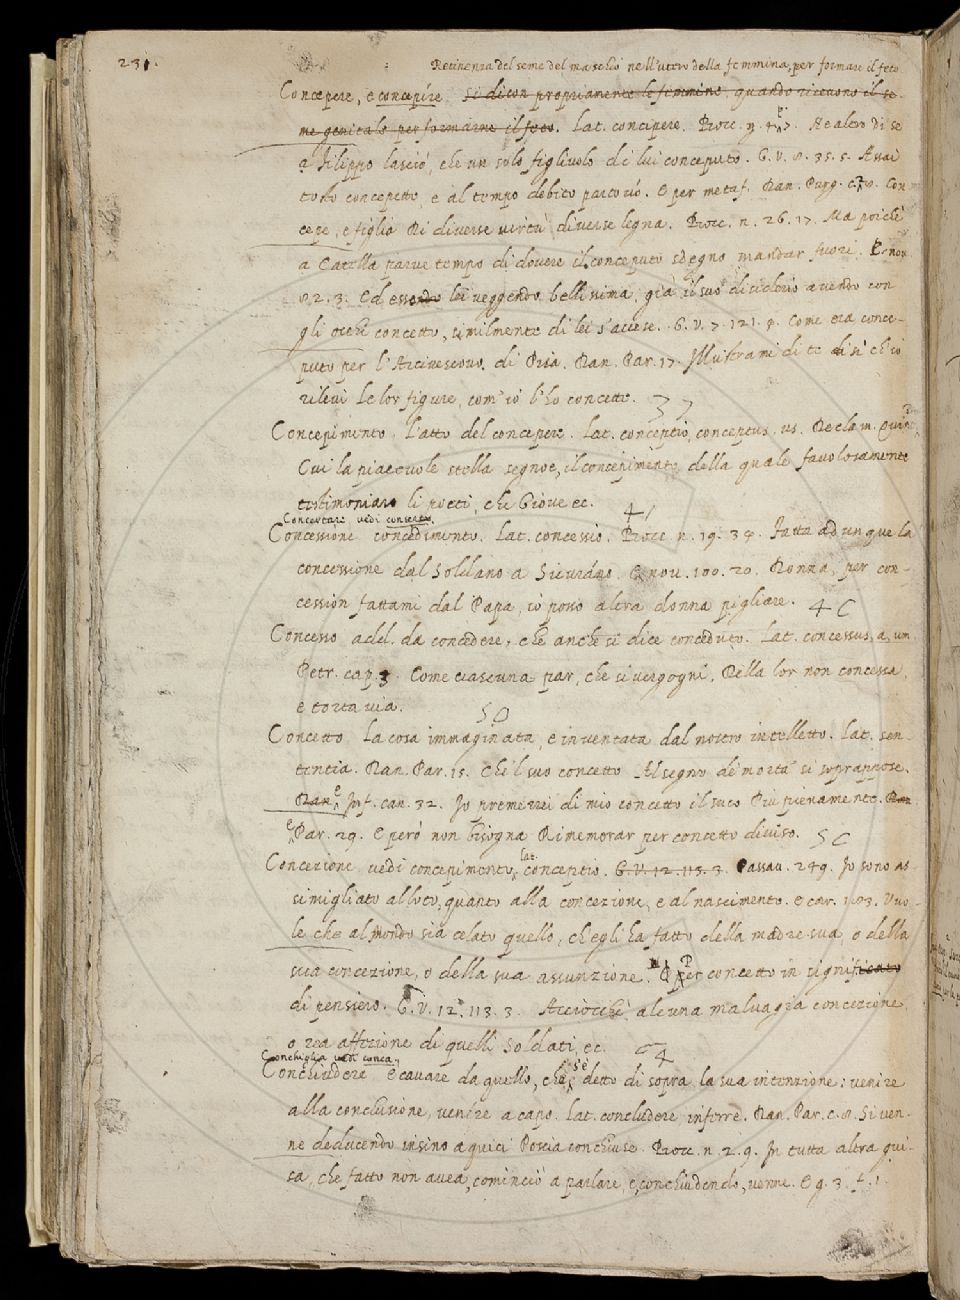 231.
Ritinenza del seme del maschio nell'utero della femmina, per formare il feto
Concepere, e concepíre. Si dicon propriamente le femmine, quando ricevono il se-
me genitale per formarne il feto. Lat. concipere. Bocc. Ne altro di se
a Filippo lasciò, che un solo figlivolo di lui conceputo. G. V. 8. 35. 5. Assai
tosto concepette, e al tempo debito partorió. E per metaf. Dan. Purg. Con
cepe, e figlia Di diverse virtù diverse legna. Bocc. n. 26. 17. Ma poichè
a Catella parve tempo di dovere il conceputo sdegno mandar fuori. E nov.
82. 3. Ed essendo lei veggendo bellissima, già il suo disiderio avendo con
gli occhi concetto, similmente di lei s'accese. G. V. 7. 121. 4. Come era conce-
puto per l'Arcivescovo di Pisa. Dan. Par. 17. Mustrami di te si ch'io
rilevi Le lor figure, com'io l'ho concette.
Concepimento. L'atto del concepere. Lat. conceptio, conceptus, us. Declam. Quint.
Cui la piacevole stella segnoe, il concepimento della quale favolosamente
testimoniano li poeti, che Giove ec.
Concertare vedi conserto.
Concessione concedimento. Lat. concessio. Bocc. n. 19. 34. Fatta adunque la
concessione dal Soldano a Sicurano. E nov. 100. 20. Donna, per con-
cession fattami dal Papa, io posso altra donna pigliare. 4 C
Concesso add. da concedere, che anche si dice conceduto. Lat. concessus, a, um
Petr. cap. 3. Come ciascuna par, che si vergogni, Della lor non concessa,
e torta via.
Concetto La cosa immaginata, e inventata dal nostro intelletto. Lat. sen-
tentia. Dan. Par. 15. Che'l suo concetto Al segno de' mortai si soprappose.
Dan. e Inf. can. 32. Io premerrei di mio concetto il suco Più pienamente. Dan
e Par. 29. E però non bisogna Rimemorar per concetto diviso. 5 C
Concezione vedi concepimento, lat. conceptio. G. V. 12. 113. 3. Passav. 249. Io sono as-
simigliato al loto, quanto alla concezione, e al nascimento. e car. Vuo-
le che al mondo sia celato quello, ch'egli ha fatto della madre sua, o della
sua concezione, o della sua assunzione. Per concetto in significato
di pensiero. G. V. 12. 113. 3. Acciocchè alcuna malvagia concezione,
o rea affezione di quelli Soldati, ec.
Conchiglia vedi conca.
Conchiudere è cavare da quello, che s'è detto di sopra la sua intenzione: venire
alla conclusione, venire a capo. Lat. concludere, inferre. Dan. Par. c. 8. Si ven-
ne deducendo insino a quici Poscia conchiuse. Bocc. n. 2. 9. In tutta altra gui-
sa, che fatto non avea, cominciò a parlare, e, conchiudendo, venne. E g. 3. f. 1.